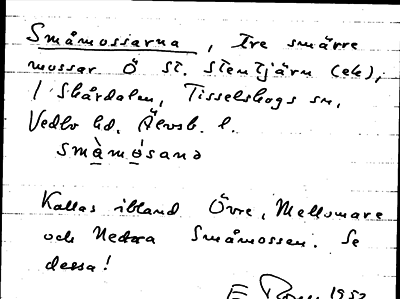 Småmossarna, tre smärre
mossar Ö St. Stentjärn (ek),
i Skårdalen, Tisselskogs sn,
Vedbo hd. Älvsb. l.
småmosana
Kallas ibland Övre, Mellomare
och Nedra Småmossen. Se
dessa!
E 1952